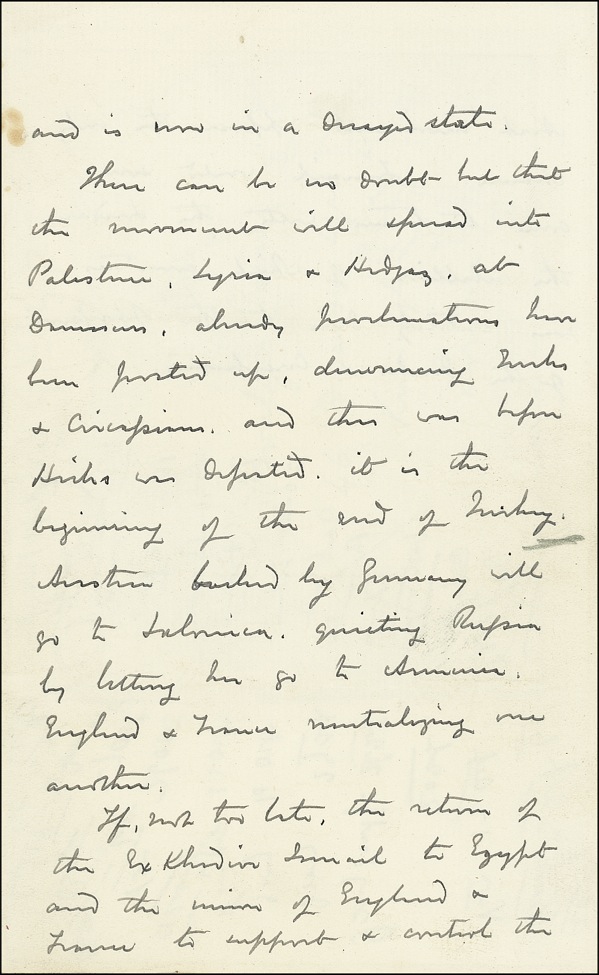 and is now in a decayed state.
There can be no doubt but that
the movement will spread into
Palestine, Syria & Hedjaz. at
Damascus, already proclamations have
been posted up, denouncing Turks
& Circassians. and this was before
Hicks was defeated. it is the
beginning of the end of Turkey.
Austria backed by Germany will
go to Salonica. quieting Russia
by letting her go to Armenia.
England & France neutralizing one
another.
If, not too late, the return of
the Ex Khedive Ismail to Egypt
and the union of England &
France to support & control the